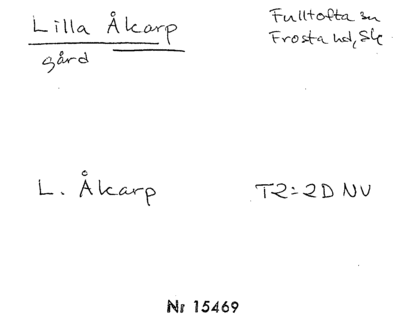 Lilla Åkarp
gård
Fulltofta sn
Frosta hd, Sk
L. Åkarp
T2:2D NV
Nr 15469